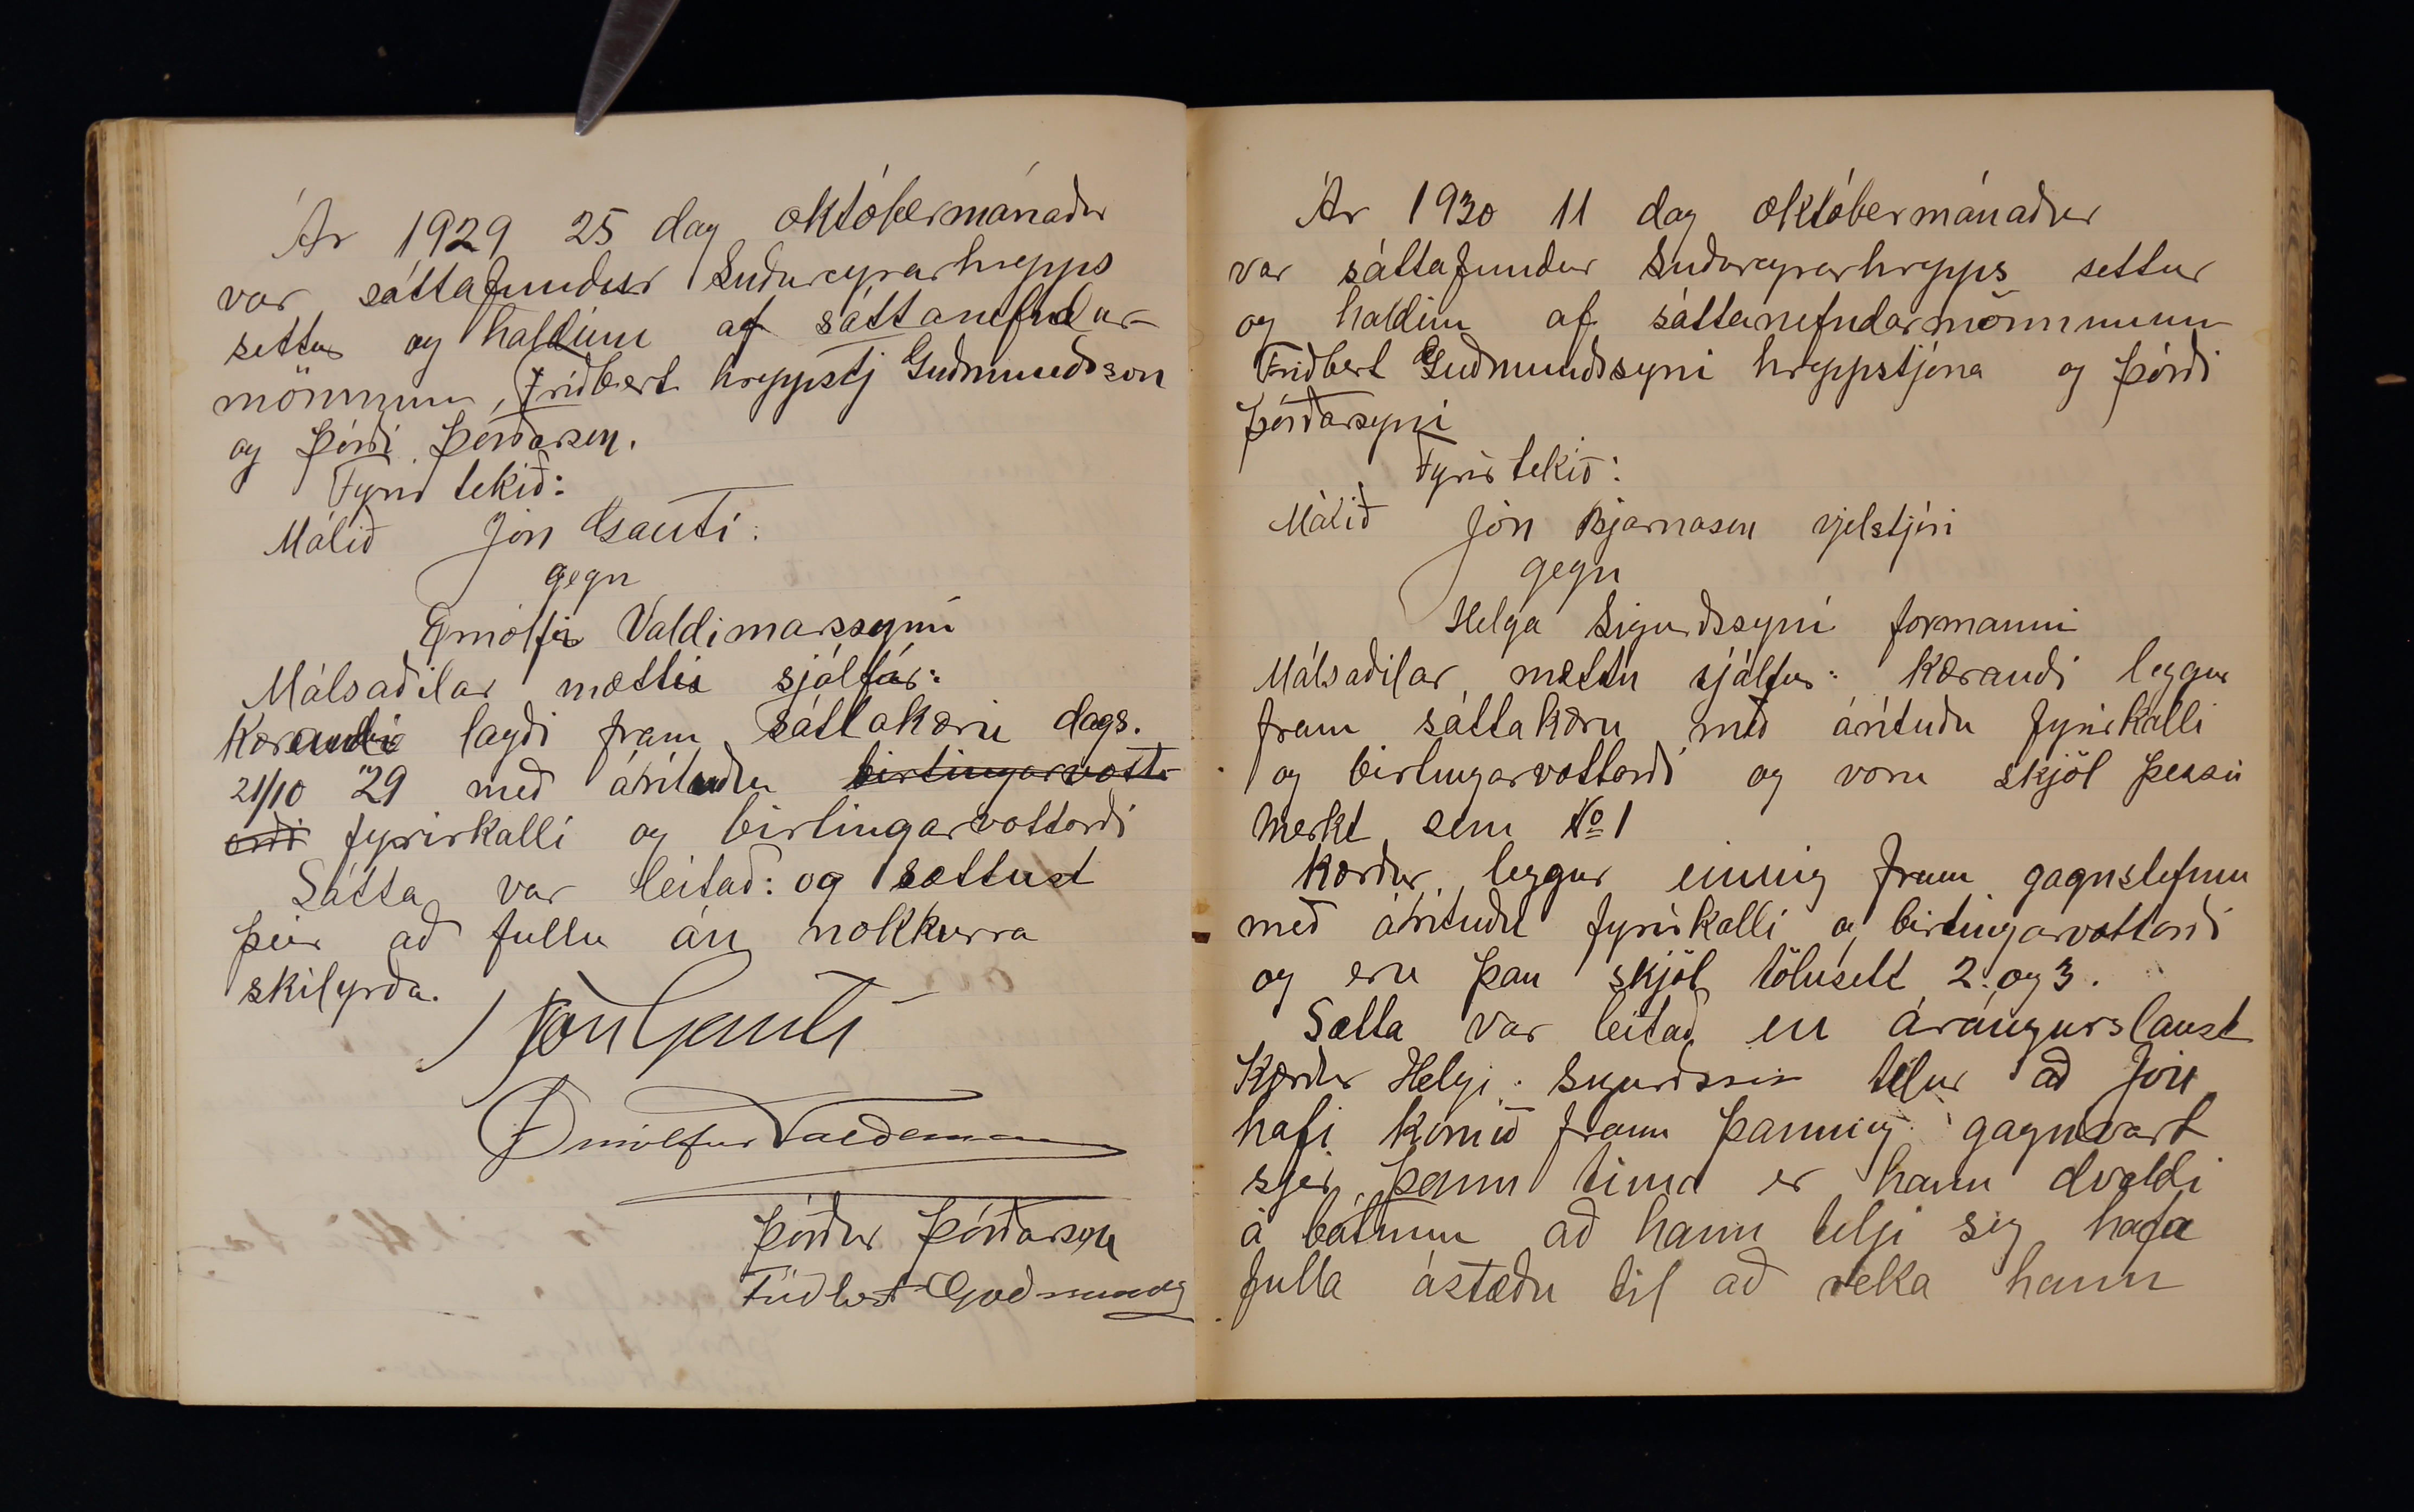 Ár 1929 25 dag októbermánaður
var sáttafundur Suðureyrarhrepps
settur og haldinn af sáttanefndar-
mönnum, Friðbert hreppstj Guðmundsson
og Þórði Þórðarson.
Fyrir tekið:
Málið Jón Gauti:
gegn
Örnólfi Valdimarssyni
Málsaðilar mættu sjálfir:
Kærandi lagði fram sáttakæru dags.
21/10 "29 með árituðu birtingarvott-
orði fyrirkalli og birtingarvottorði
Sátta var leitað: og sættust
þeir að fullu án nokkurra
skilyrða.
Jón Gauti
Örnólfur Valdemarsson
Þórður Þórðarson
Friðbert Guðmunds
Ár 1930 11 dag októbermánaður
var sáttafundur Suðureyrarhrepps settur
og haldinn af sáttanefndarmönnmunn
Friðbert Guðmundssyni hreppstjóra og Þórði
Þórðarsyni
Fyrir tekið:
Málið Jón Bjarnason vjelstjóri
gegn
Helga Sigurðssyni formanni
Málsaðilar mættu sjálfur: Kærandi leggur
fram sáttakæru með árituðu fyrirkalli
og birtingarvottorði og voru skjöl þessu
merkt sem No 1
Kærður leggur einnig fram gagnstefnu
með árituðu fyrirkalli og birtingarvottorði
og eru þau skjöl tölusett 2. og 3.
Sætta var leitað en árángurslaust
Kærður Helgi Sigurðsson télur að Jón
hafi komið fram þannig gagnvart
sjer þann tíma er hann dvaldi
á bátnum að hann telji sig hafa
fulla ástæðu til að reka hann